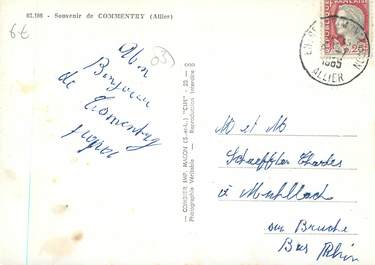 03.108 - Souvenir de COMMENTRY (Allier)
6€
03
Un
Bonjour
de Comentry
COMBIER IMP. MACON (S.-et-L.) "CIM"
Photographie Véritable - Reproduction Interdite
0,25
1965
ALLIER
M et M
Schaeffler Charles
à Muhlbach
sur Bruche
Bas Rhin